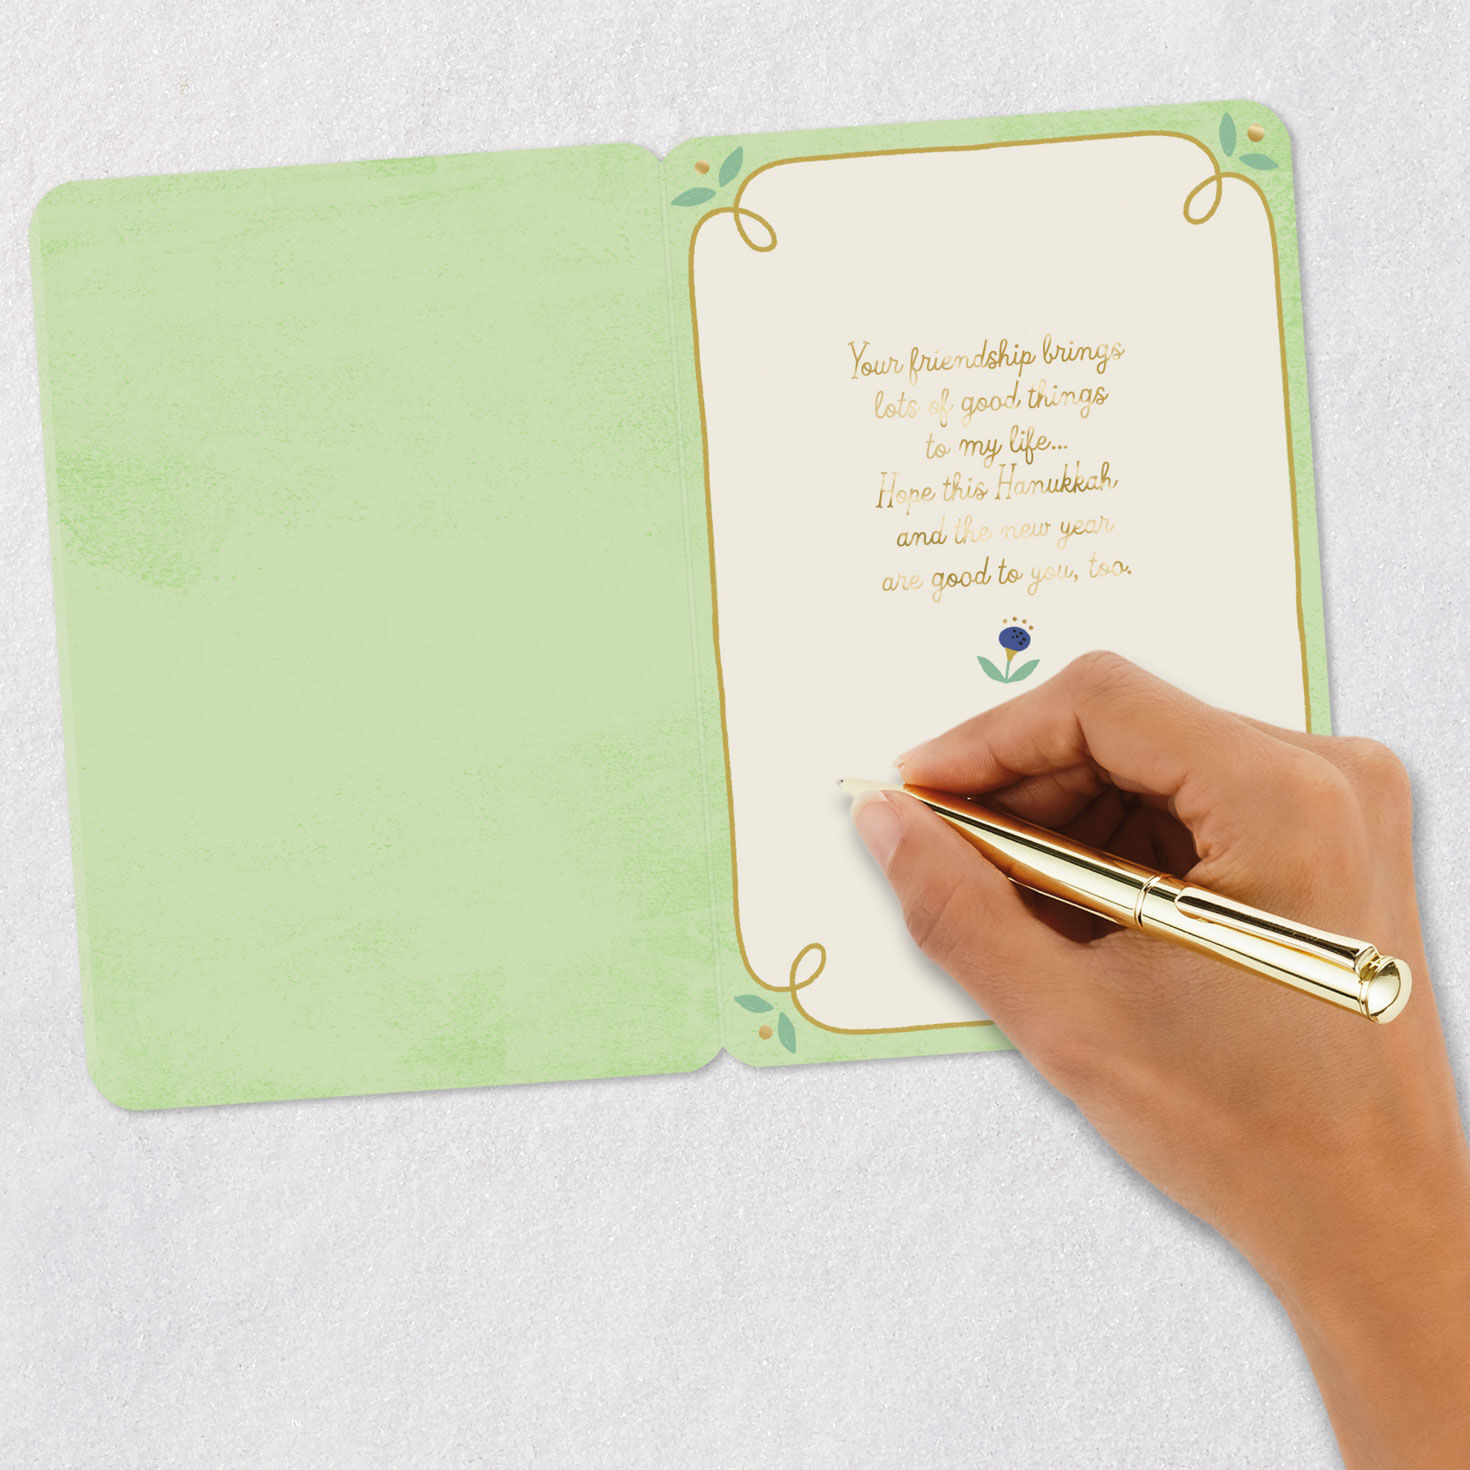 Your friendship brings
lots of good things
to my life...
Hope this Hanukkah
and the new year
are good to you, too.